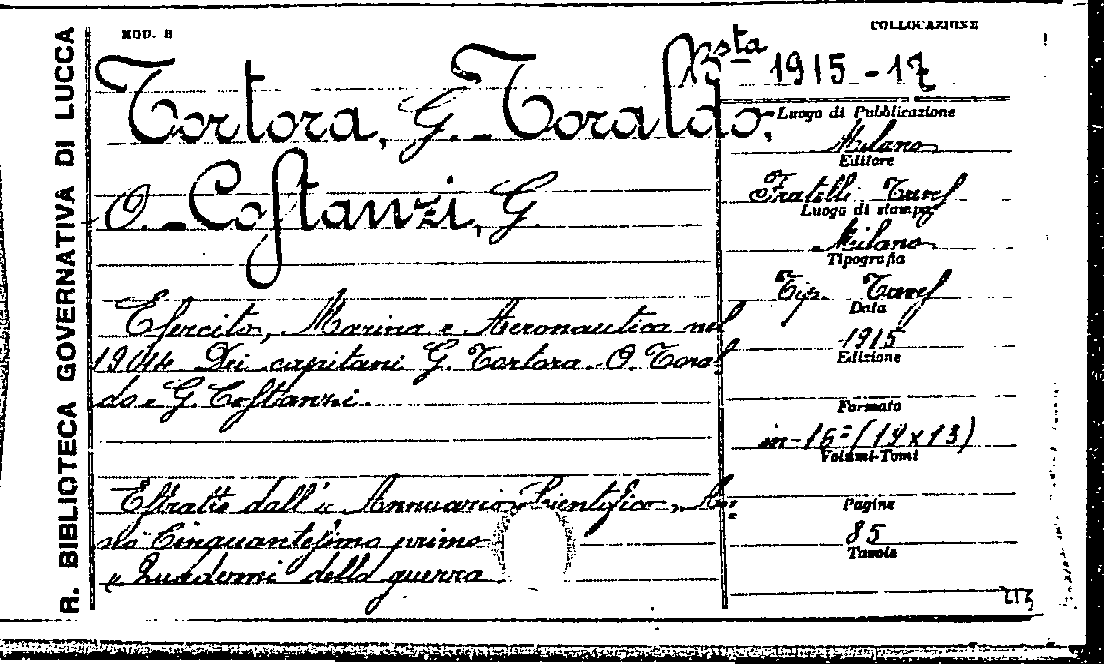 R. BIBLIOTECA GOVERNATIVA DI LUCCA
MOD. B
COLLOCAZIONE
Bsta 1915-17
Tortora, G. - Toraldo,
O. - Costanzi, G.
Esercito, Marina e Aeronautica nel
1914 Dei capitani G. Tortora - O. Toral
do e G. Costanzi.
Estratto dall' « Annuario Scientifico, An-
no Cinquantesimo primo
« Quaderni della guerra
Luogo di Pubblicazione
Milano
Editore
Fratelli Treves
Luogo di stampa
Milano
Tipografia
Tip. Treves
Data
1915
Edizione
Formato
in-16º (19x13)
Volumi-Tomi
Pagine
85
Tavole